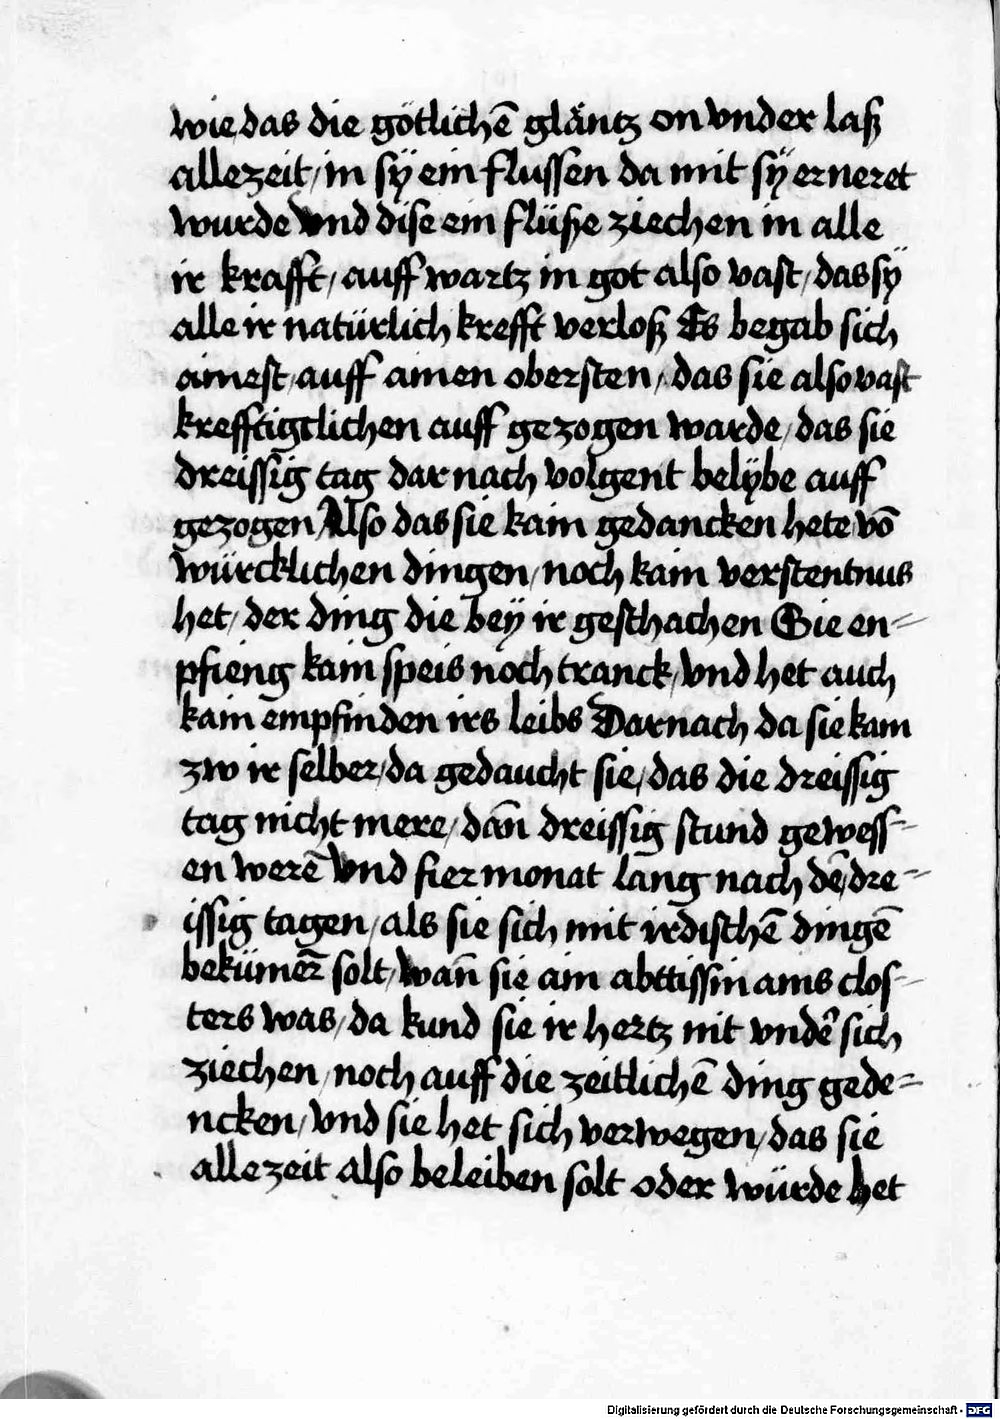 wie das die götlichē gläntz on vnder laß
alle zeit / in sÿ ein flussen da mit sÿ erneret
wurde Vnd dise ein flüße ziechen in alle
ir krafft / auff wartz in got also vast / das sÿ
alle ir natürlich krefft verloß Es begab sich
ainest / auff ainen obersten / das sie also vast
krefftigtlichen auff gezogen warde / das sie
dreissig tag dar nach volgent belÿbe auff
gezogen Also das sie kain gedancken hete vō
würcklichen dingen / noch kain verstentnus
het / der ding die beÿ ir geschachen Sie en=
pfieng kain speis noch tranck / vnd het auch
kain empfinden irs leibs Darnach da sie kam
zw ir selber / da gedaucht sie / das die dreissig
tag nicht mere / dañ dreissig stund gewess=
en werē Vnd fier monat lang nach dē / dre=
issig tagen / als sie sich mit irdischē dingē
bekümer̄ solt / wan̄ sie ain abttissin ains clos=
ters was / da kund sie ir hertz nit vnder̄ sich
ziechen / noch auff die zeitlichē ding gede=
ncken / vnd sie het sich verwegen / das sie
alle zeit also beleiben solt oder würde het
Digitalisierung gefördert durch die Deutsche Forschungsgemeinschaft - DFG